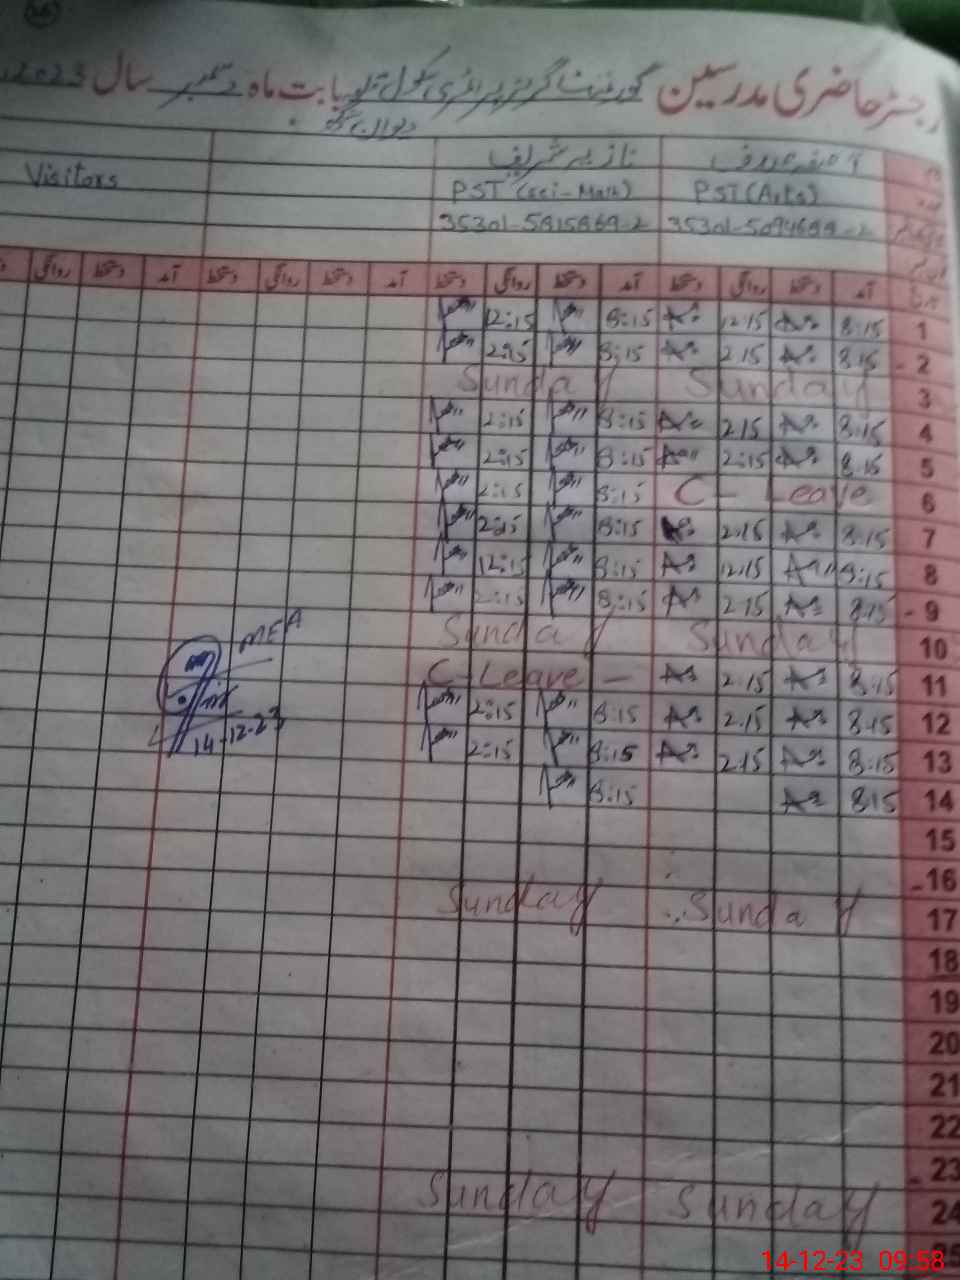 رجسٹر حاضری مدرسین گورنمنٹ گرلز پرائمری سکول بابت ماہ دسمبر سال 2023
دیوان سنگھ
آصفہ نازیہ شریف
PST (Arts) PST (Sci-Math) Visitors
آمد دستخط روانگی دستخط آمد دستخط روانگی دستخط آمد دستخط روانگی دستخط آمد دستخط روانگی
1 8:15 12:15 8:15 12:15
2 8:15 2:15 8:15 2:15
3 Sunday Sunday
4 8:15 2:15 8:15 2:15
5 8:15 2:15 8:15 2:15
6 C- Leave 8:15 2:15
7 8:15 2:15 8:15 2:15
8 8:15 12:15 8:15 12:15
9 8:15 2:15 8:15 2:15
10 Sunday Sunday
11 8:15 2:15 C-Leave -
12 8:15 2:15 8:15 2:15
13 8:15 2:15 8:15 2:15
14 8:15 8:15
MEA
14-12-23
15
16
17 Sunday Sunday
18
19
20
21
22
23
24 Sunday Sunday
25
14-12-23 09:58